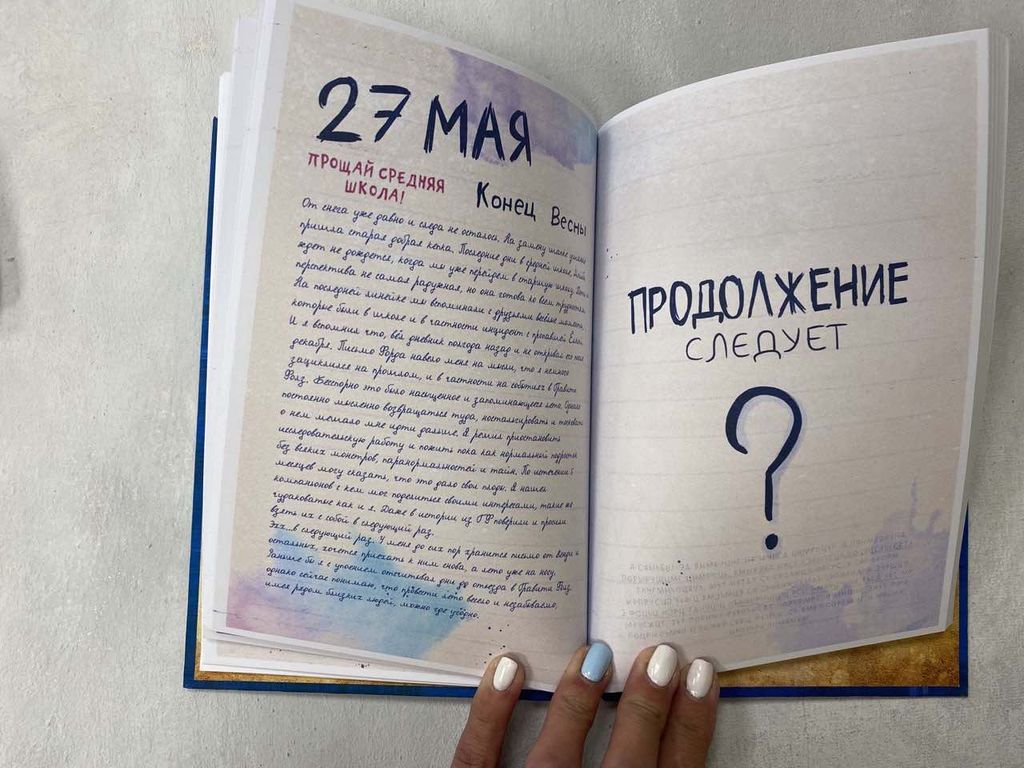 27 МАЯ
ПРОЩАЙ СРЕДНЯЯ
ШКОЛА!
Конец Весны
От снега уже давно и следа не осталось. На замену шапке ушанке
пришла старая добрая кепка. Последние дни в средней школе,
ждет не дождется, когда мы уже перейдем в старшую школу.
перспектива не самая радужная, но она готова ко всем трудностям.
На последней линейке мы вспоминали с друзьями весёлые моменты,
которые были в школе и в частности инцидент с
И я вспомнил что, вёл дневник полгода назад и не открывал его
декабря. Письмо Форда навело меня на мысли, что я немного
зациклился на прошлом, и в частности на событиях в Гравити
Фолз. Бесспорно это было насыщенное и запоминающееся лето. Однако
постоянно мысленно возвращаться туда, ностальгировать и
о нем мешало мне идти дальше. Я решил приостановить
исследовательскую работу и пожить пока как нормальный подросток
без всяких монстров, паранормальностей и тайн. По истечении 5
месяцев могу сказать, что это дало свои плоды. Я нашел
компаньонов с кем мог поделиться своими интересами, такие же
чудаковатые как и я. Даже в истории из Г.Ф поверили и просили
взять их с собой в следующий раз.
Эхх...в следующий раз. У меня до сих пор хранится письмо от Венди и
остальных, хочется приехать к ним снова, а лето уже на носу.
Раньше бы я с упоением отсчитывал дни до отъезда в Гравити Фолз.
однако сейчас понимаю, что провести лето весело и незабываемо,
имея рядом близких людей, можно где угодно.
ПРОДОЛЖЕНИЕ
СЛЕДУЕТ
?